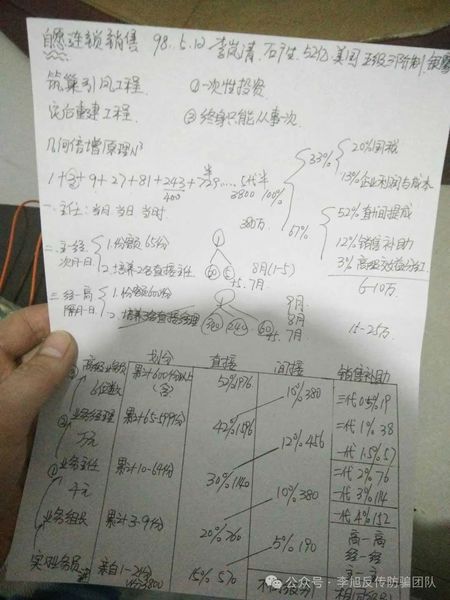 自愿连锁销售 98.5.12 李岚清 石广生 52份 美国 五级三阶制
筑巢引凤工程 ①一次性投资
灾后重建工程 ②终身只能从事一次
几何倍增原理 N³
1+3+9+27+81+243+729……5代半
400 3800 100%
33% 20%国税
13%企业利润与成本
380万
67% 52%直间提成
12%销售补助
3%
6-10万
一.主任:当月 当日 当时
二.主-经 1.份额65份
次月1日 2.培养2名直接主任
8月(1-5)
7月
三.经-高 1.份额600份
隔月一日 2.培养3名直接经理
8月
8月
7月
15-25万
240 60
划分 直接 间接 销售补助
高级业务员 累计600份以上 52% 1976 三代 0.5% 19
6位数 (含) 10% 380 二代 1% 38
业务经理 累计65-599份 42% 1596 一代 1.5% 57
万元 12% 456 三代 2% 76
业务主任 累计10-64份 30% 1140 二代 3% 114
千元 10% 380 一代 4% 152
业务组长 累计3-9份 20% 760 高-高
5% 190 经-经
实习业务员 亲自1-2份 15% 570 主-主
1份3800
公众号·李旭反传防骗团队